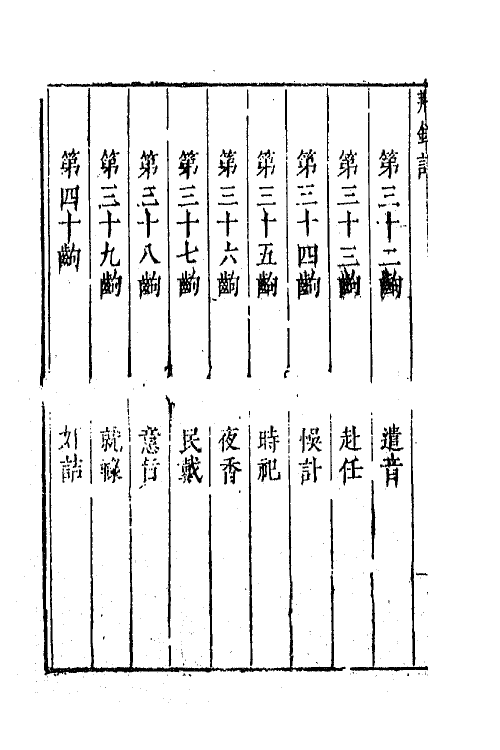 荆釵記
第三十二齣 遣音
第三十三齣 赴任
第三十四齣 悞訃
第三十五齣 時祀
第三十六齣 夜香
第三十七齣 民戴
第三十八齣 意旨
第三十九齣 就祿
第四十齣 如詰